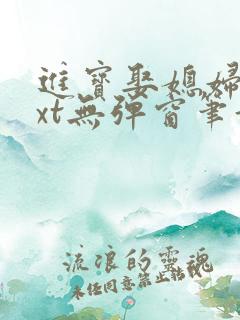 進寶娶媳婦
xt無彈窗筆
流浪的靈魂
未任同意禁止轉載